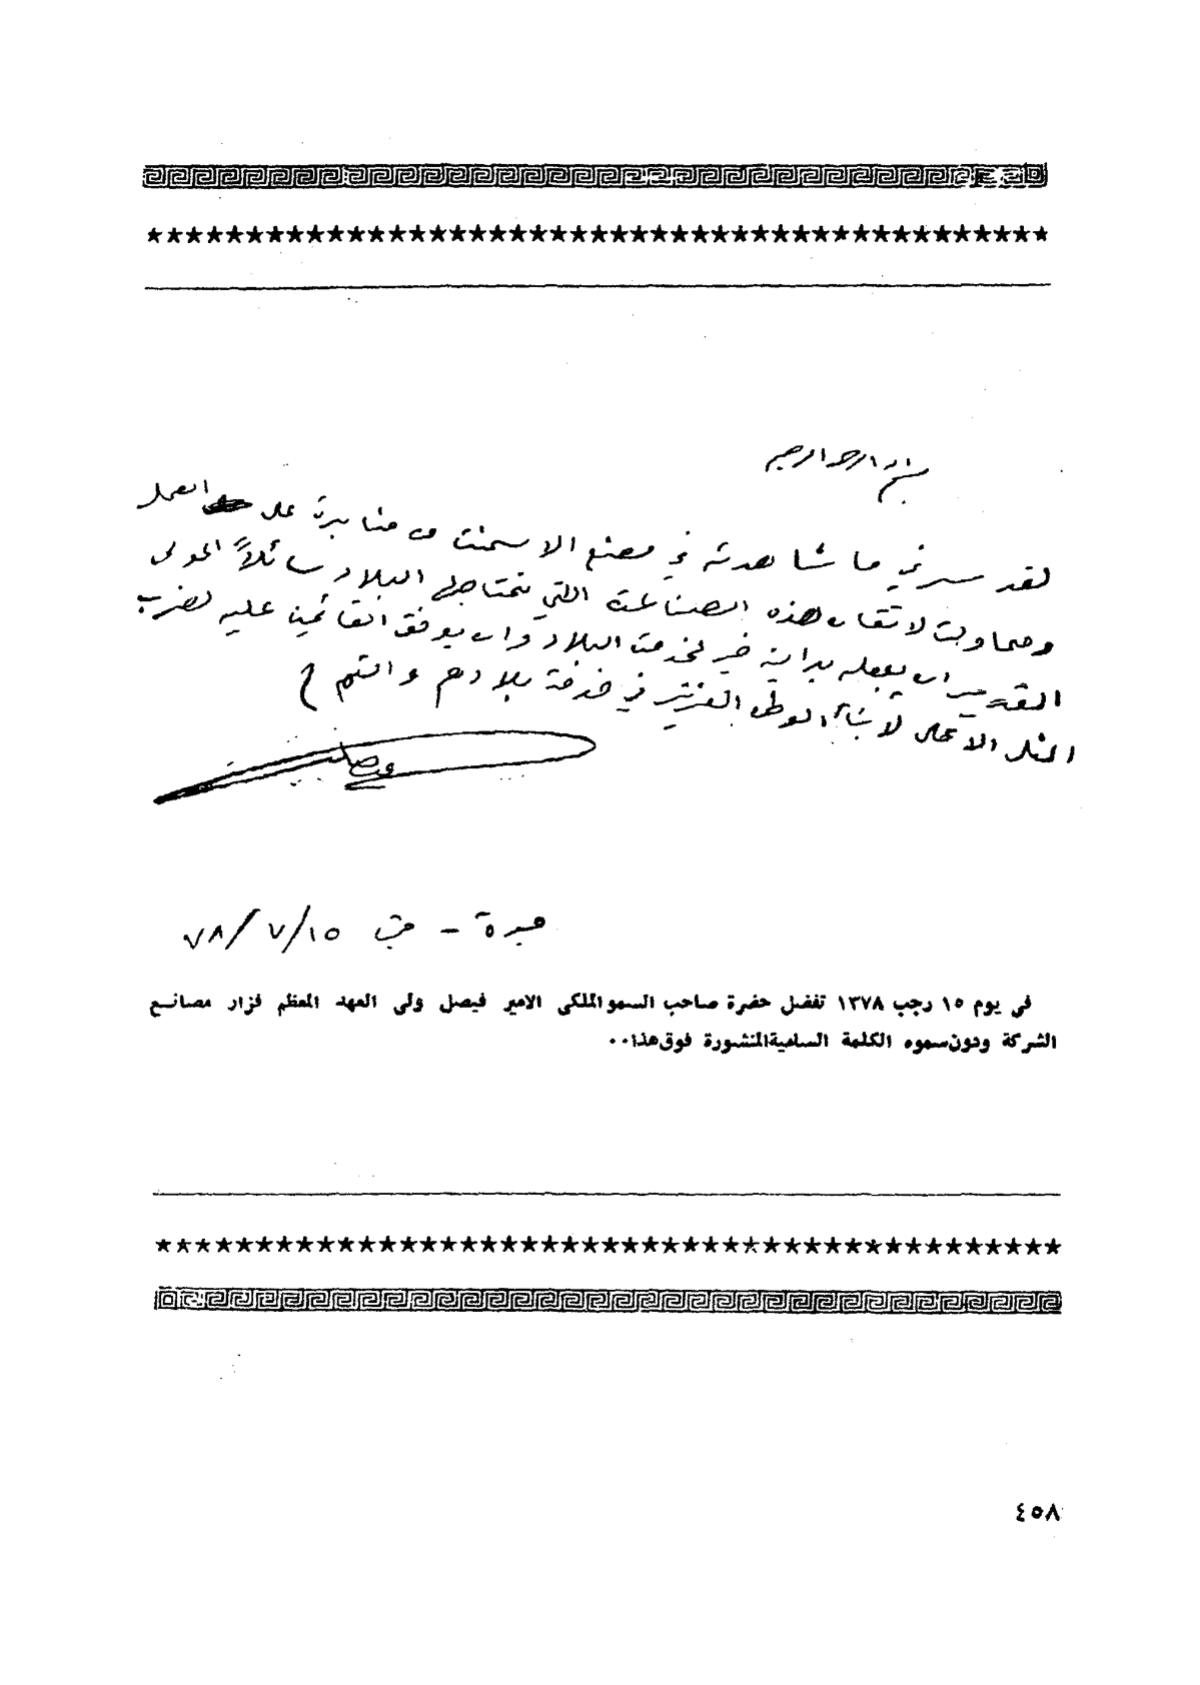 بسم الله الرحمن الرحيم
لقد سرني ما شاهدته في مصنع الاسمنت من مثابرة على العمل
ومحاولت لاتقان هذه الصناعة التي تحتاجها البلاد سائلاً المولى
القدير ان يجعله بداية خير لخدمت البلاد وان يوفق القائمين عليه لضرب
المثل الاعلى لابناء الوطن العزيز في خدمة بلادهم والسلام
فيصل
جدة - في ٧٨/٧/١٥
في يوم ١٥ رجب ١٣٧٨ تفضل حضرة صاحب السمو الملكى الامير فيصل ولى العهد المعظم فزار مصانع
الشركة ودون سموه الكلمة السامية المنشورة فوق هذا٠٠
٤٥٨